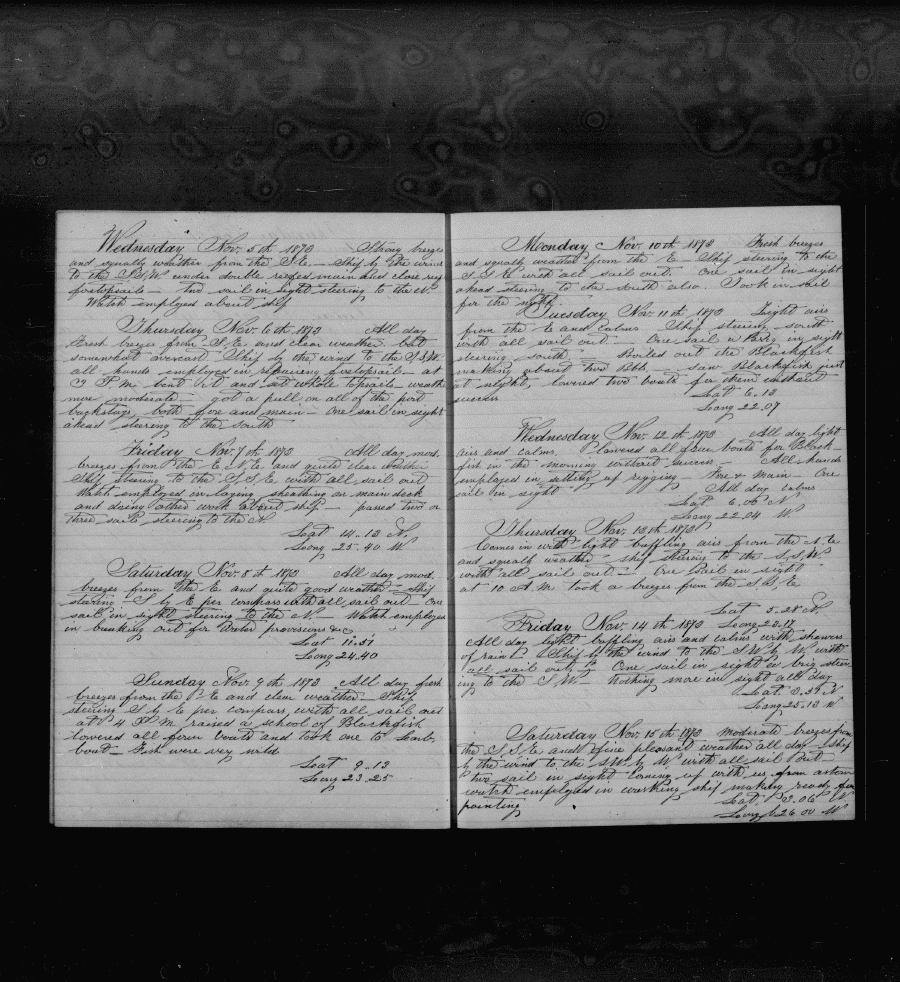 Wednesday Nov. 5th 1873 Strong breezes
and squally weather from the S.E. — Ship by the wind
to the S.S.W. under double reefed main and close reef
foretopsails — One sail in sight steering to the N.
Watch employed about ship
Thursday Nov. 6th 1873 All day
Fresh breezes from S.E. and clear weather but
somewhat overcast Ship by the wind to the S.S.W.
all hands employed in repairing foretopsail — at
P.M. bent it and set whole topsails — weather
more moderate — got a pull on all of the port
backstays both fore and main — One sail in sight
ahead steering to the South
Friday Nov. 7th 1873 All day mod.
breezes from the E.N.E. and quite clear weather
Ship steering to the S.S.E. with all sail out
Watch employed in laying sheathing on main deck
and doing other work about ship — passed two or
three sails steering to the N
Lat 14.13 N.
Long 25.40 W
Saturday Nov. 8th 1873 All day mod.
breezes from the E and quite good weather — Ship
steering S by E per compass with all sail out — One
sail in sight steering to the N. — Watch employed
in breaking out for Water provisions &c
Lat 11.51
Long 24.40
Sunday Nov. 9th 1873 All day fresh
breezes from the E and clear weather — Ship
steering S by E per compass with all sail out
at 4 P.M. raised a school of Blackfish
lowered all four boats and took one to Larb.
boat — Fish were very wild
Lat 9.13
Long 23.25
Monday Nov. 10th 1873 Fresh breezes
and squally weather from the E — Ship steering to the
S.S.W with all sail out. One sail in sight
ahead steering to the South also. Took in sail
for the night.
Tuesday Nov. 11th 1873 Light airs
from the E and calms. Ship steering south
with all sail out. One sail a Brig in sight
steering south — Boiled out the Blackfish
making about two Bbls. — saw Blackfish just
at night, lowered two boats for them without
success Lat 6.13
Long 22.07
Wednesday Nov. 12th 1873 All day light
airs and calms. lowered all four boats for Black
fish in the morning without success All hands
employed in setting up rigging — Fore & Main — One
sail in sight All day calms
Lat 6.06 N
Long 22.04 W
Thursday Nov. 13th 1873
Comes in with light baffling airs from the N.E
and squally weather — ship steering to the S.S.W
with all sail out. — One sail in sight
at 10 A.M. took a breeze from the S.S.E
Lat 5.28 N.
Friday Nov. 14th 1873 Long 23.17
All day light baffling airs and calms with showers
of rain Ship by the wind to the S.W. by W. with
all sail out. One sail in sight a brig steer
ing to the S.W. Nothing more in sight all day
Lat 3.39 N
Long 25.13 W
Saturday Nov. 15th 1873 Moderate breezes from
the S.S.E. and fine pleasant weather all day — Ship
by the wind to the S.W. by W with all sail out —
two sail in sight coming up with us from astern
watch employed in working ship making ready for
painting Lat. 3.06 N
Long 26.00 W